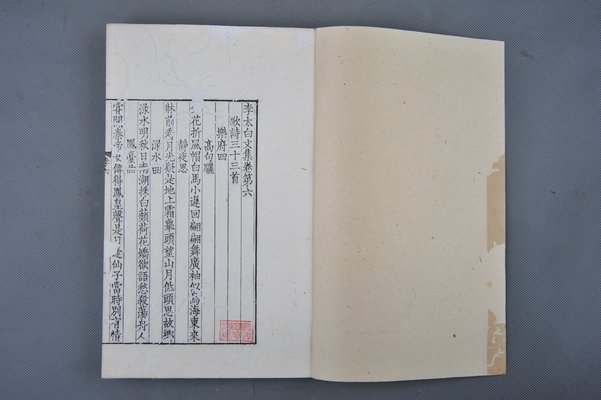 李太白文集卷第六
歌詩三十三首
樂府四
高句驪
花折風帽白馬小遲回翩翩舞廣袖似鳥海東來
靜夜思
牀前看月光疑是地上霜舉頭望山月低頭思故鄉
淥水曲
淥水明秋日南湖採白蘋荷花嬌欲語愁殺蕩舟人
鳳臺曲
嘗聞秦帝女傳得鳳皇聲是日逢仙子當時別有情